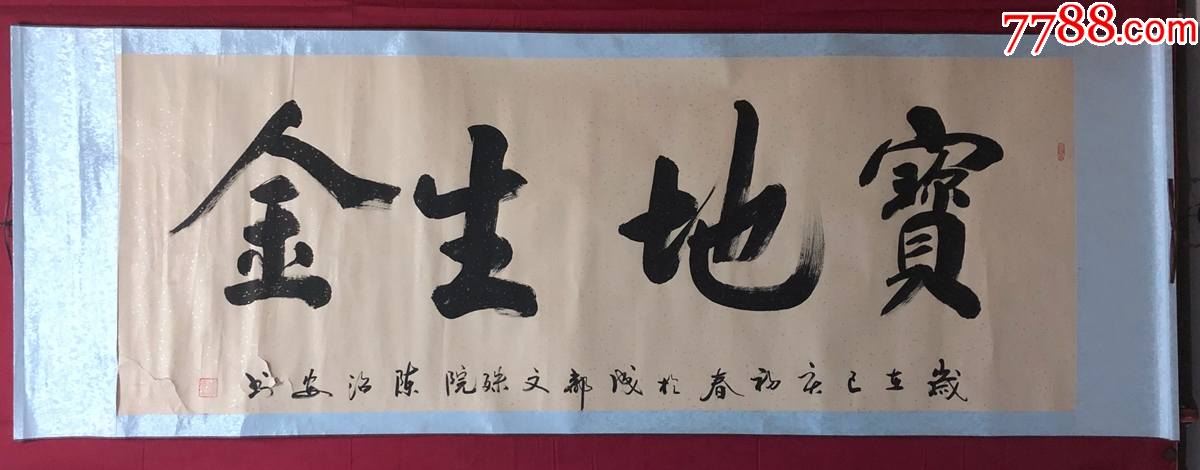 7788.com
寶地生金
歲在己亥初春於成都文殊院陳治安书